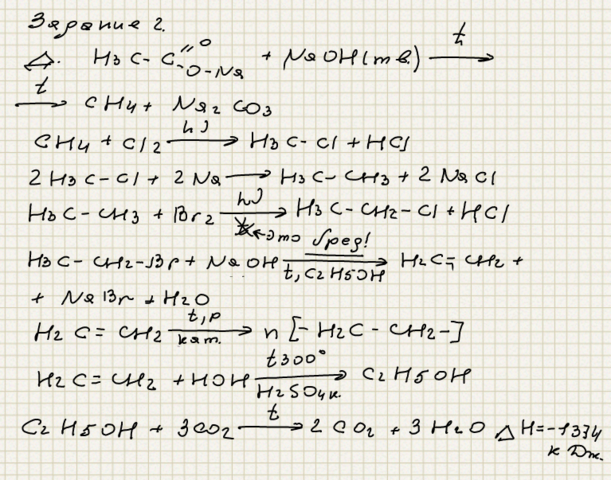 Задание 2.
△. H3C-C(=O)-O-Na + NaOH(тв.) —t→
—t→ CH4 + Na2CO3
CH4 + Cl2 —hν→ H3C-Cl + HCl
2H3C-Cl + 2Na → H3C-CH3 + 2NaCl
H3C-CH3 + Br2 —hν→ H3C-CH2-Cl + HCl
←это бред!
H3C-CH2-Br + NaOH —t, C2H5OH→ H2C=CH2 +
+ NaBr + H2O
H2C=CH2 —t, p кат.→ n[-H2C-CH2-]
H2C=CH2 + HOH —t300° H2SO4к.→ C2H5OH
C2H5OH + 3CO2 —t→ 2CO2 + 3H2O △H=-1374
кДж.